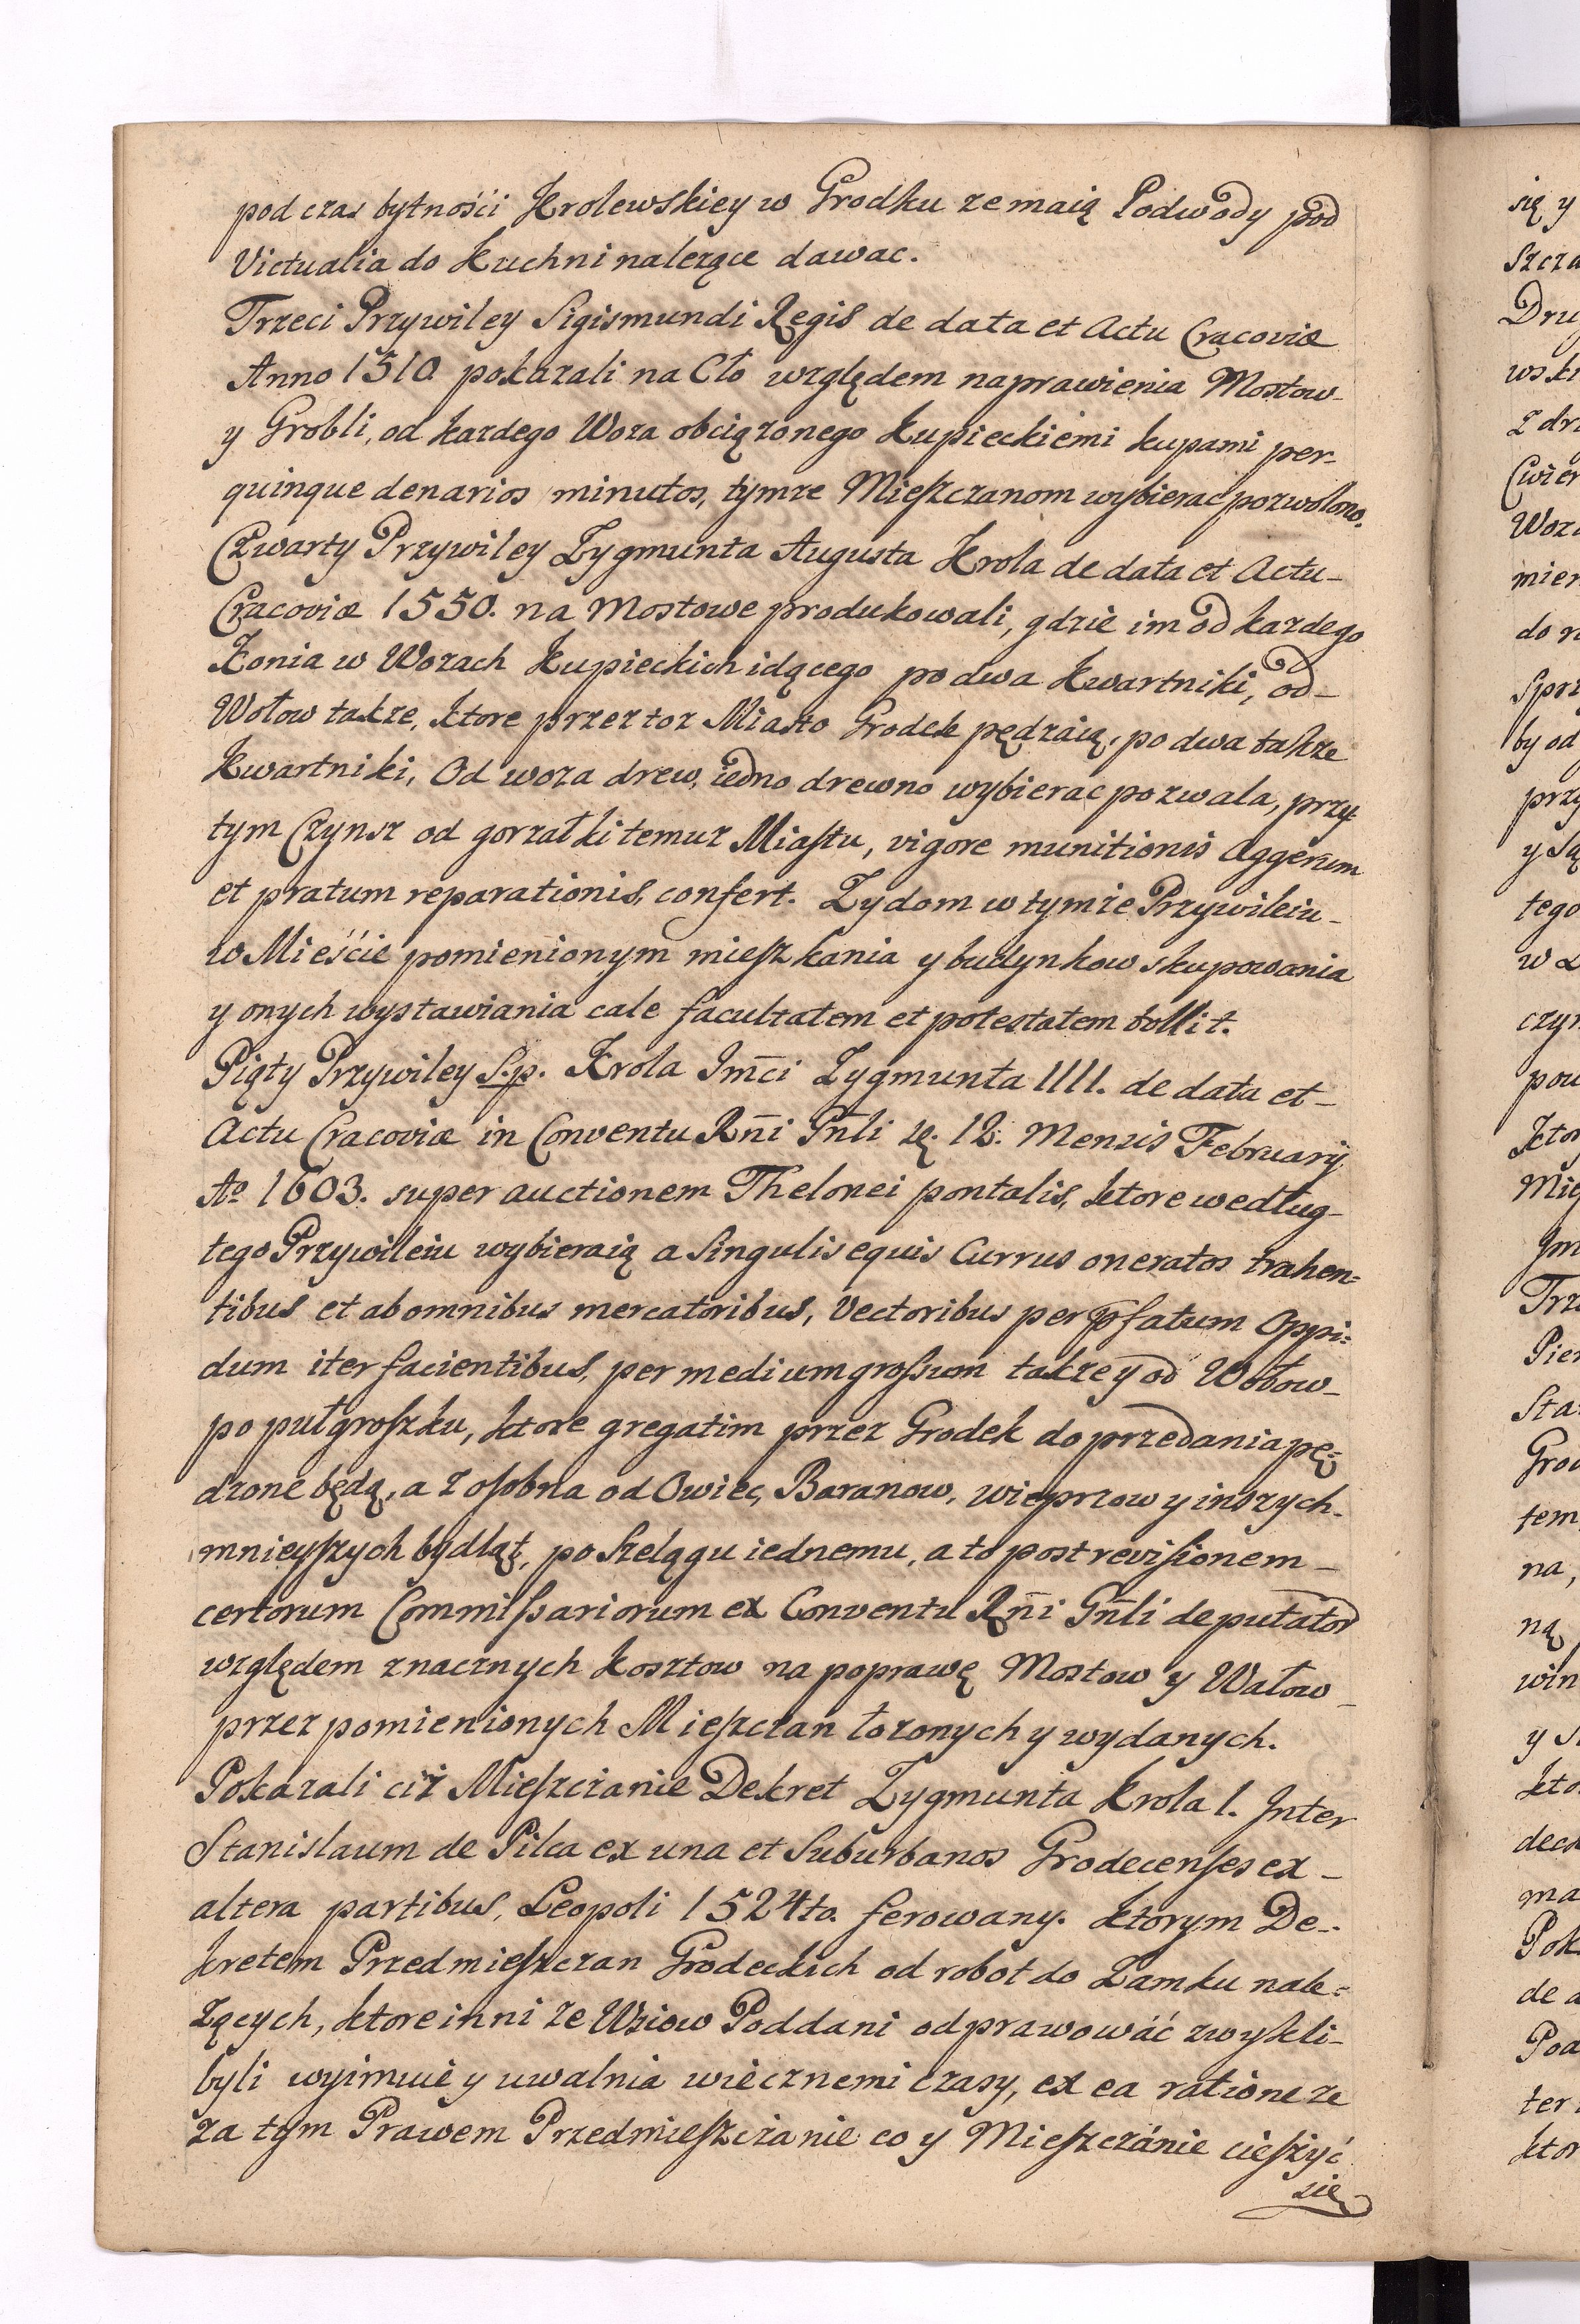 podczas bytności Krolewskiey w Grodku ze maią Podwody pod
Victualia do Kuchni nalezące dawac.
Trzeci Przywiley Sigismundi Regis de data et Actu Cracoviæ
Anno 1510 pokazali na Cło względem naprawienia Mostow
y Grobli, od kazdego Woza obciązonego Kupieckiemi kupami per
quinque denarios minutos, tymze Mieszczanom wybierac pozwolono.
Czwarty Przywiley Zygmunta Augusta Krola de data et Actu
Cracoviæ 1550. na Mostowe produkowali, gdzie im od kazdego
Konia w Wozach Kupieckich idącego po dwa Kwartniki, od
Wołow takze, ktore przez toz Miasto Grodek pędzaią, po dwa takze
Kwartniki, Od woza drew, iedno drewno wybierac pozwala, przy
tym Czynsz od gorzałki temuz Miastu, vigore munitionis Aggerum
et pratum reparationis, confert. Zydom w tymze Przywileiu
w Mieście pomienionym mieszkania y budynkow skupowania
y onych wystawiania cale facultatem et potestatem tollit.
Piąty Przywiley S.p. Krola Jmci Zygmunta IIII. de data et
Actu Cracoviæ in Conventu Rñi Gñli 12. Mensis February
Aº 1603. super auctionem Thelonei pontalis, ktore według
tego Przywileiu wybieraią a Singulis equis Currus oneratos trahen=
tibus et ab omnibus mercatoribus, Vectoribus per pfatum Oppi=
dum iter facientibus, per medium grossum takze y od Wołow
po pułgroszku, ktore gregatim przez Grodek do przedania pę=
dzone będą, a z osobna od Owiec, Baranow, wieprzow y inszych
mnieyszych bydląt, po Szelągu iednemu, a to post revisionem
certorum Commissariorum ex Conventu Rñi Gñli deputator
względem znacznych kosztow na poprawę Mostow y Wałow
przez pomienionych Mieszczan łozonych y wydanych.
Pokazali ciż Mieszczanie Dekret Zygmunta Krola I. Inter
Stanislaum de Pilca ex una et Suburbanos Grodecenses ex
altera partibus, Leopoli 1524to. ferowany. ktorym De=
kretem Przedmieszczan Grodeckich od robot do Zamku nale=
zących, ktore inni ze Wsiow Poddani odprawowáć zwykli
byli wyimuie y uwalnia wiecznemi czasy, ex ea ratione ze
za tym Prawem Przedmieszczanie co y Mieszczánie cieszyć
sie